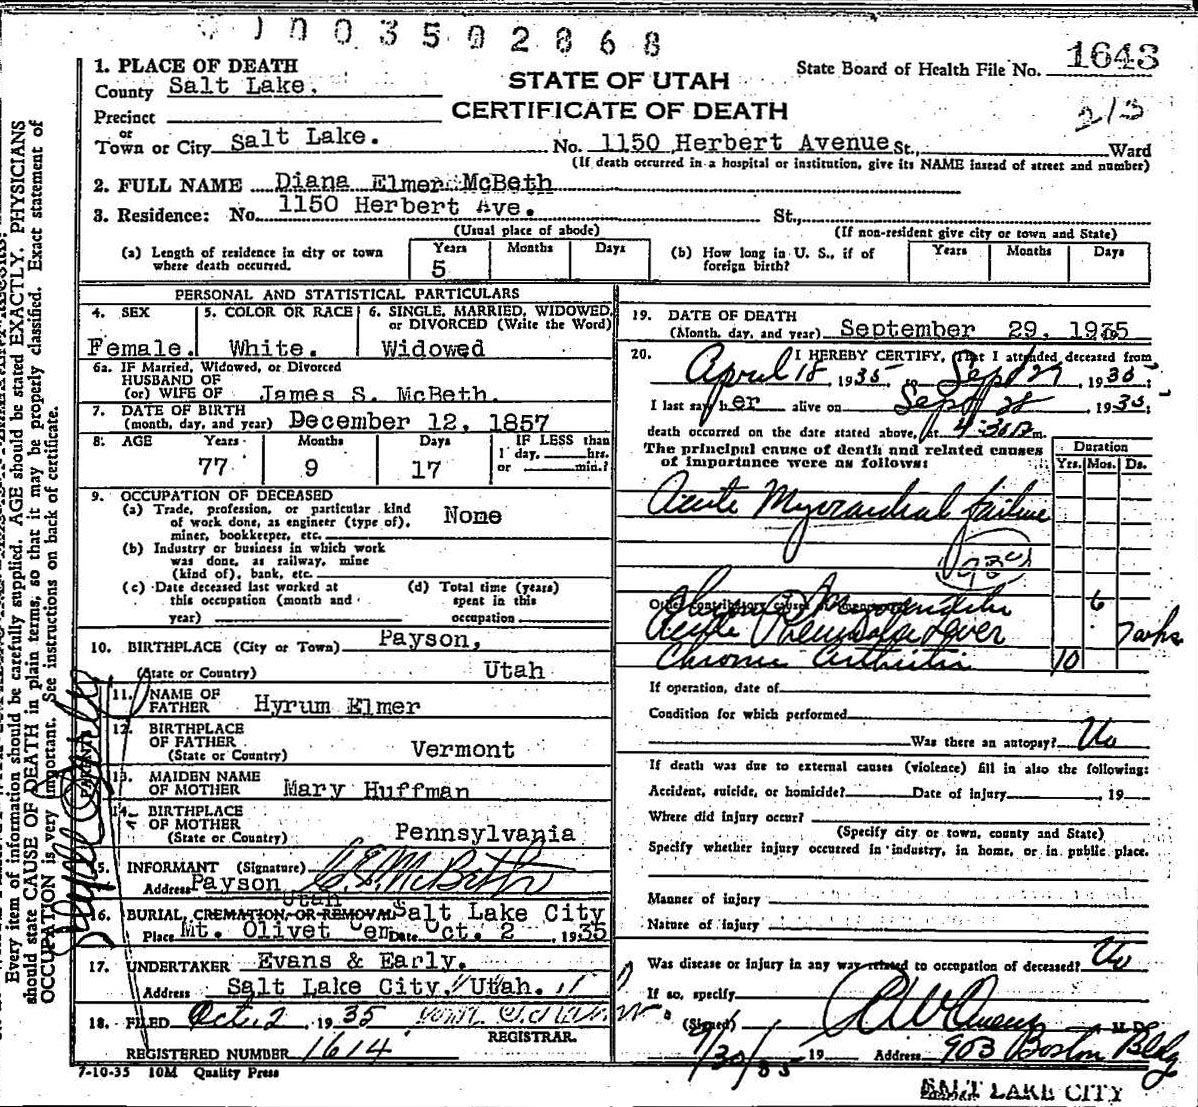 1003502868
1. PLACE OF DEATH
County Salt Lake.
STATE OF UTAH
CERTIFICATE OF DEATH
State Board of Health File No. 1643
213
Precinct
or
Town or City Salt Lake. No. 1150 Herbert Avenue St., Ward
(If death occurred in a hospital or institution, give its NAME insead of street and number)
2. FULL NAME Diana Elmer McBeth
3. Residence: No. 1150 Herbert Ave. St.,
(Usual place of abode) (If non-resident give city or town and State)
(a) Length of residence in city or town where death occurred. Years 5 Months Days
(b) How long in U. S., if of foreign birth? Years Months Days
PERSONAL AND STATISTICAL PARTICULARS
4. SEX Female.
5. COLOR OR RACE White.
6. SINGLE, MARRIED, WIDOWED, or DIVORCED (Write the Word) Widowed
6a. IF Married, Widowed, or Divorced
HUSBAND OF
(or) WIFE OF James S. McBeth.
7. DATE OF BIRTH
(month, day, and year) December 12, 1857
8. AGE Years 77 Months 9 Days 17 IF LESS than
1 day, hrs.
or min.?
9. OCCUPATION OF DECEASED
(a) Trade, profession, or particular kind
of work done, as engineer (type of),
miner, bookkeeper, etc. None
(b) Industry or business in which work
was done, as railway, mine
(kind of), bank, etc.
(c) Date deceased last worked at
this occupation (month and
year)
(d) Total time (years)
spent in this
occupation
10. BIRTHPLACE (City or Town) Payson,
(State or Country) Utah
11. NAME OF
FATHER Hyrum Elmer
12. BIRTHPLACE
OF FATHER
(State or Country) Vermont
13. MAIDEN NAME
OF MOTHER Mary Huffman
14. BIRTHPLACE
OF MOTHER
(State or Country) Pennsylvania
15. INFORMANT (Signature) C. E. McBeth
Address Payson
Utah
16. BURIAL, CREMATION, OR REMOVAL Salt Lake City
Place Mt. Olivet Cem Date Oct. 2, 1935
17. UNDERTAKER Evans & Early.
Address Salt Lake City, Utah.
18. FILED Oct 2 1935
REGISTRAR.
REGISTERED NUMBER 1614
7-10-35 10M Quality Press
19. DATE OF DEATH
(Month, day, and year) September 29, 1935
20. I HEREBY CERTIFY, That I attended deceased from
April 18, 1935, to Sept 29, 1935;
I last saw her alive on Sept 28, 1935;
death occurred on the date stated above, at 4:30 m.
The principal cause of death and related causes
of importance were as follows:
Duration
Yrs. Mos. Ds.
Acute Myocardial failure
Other contributory causes of importance
Chronic Myocarditis 6
Acute
Chronic Arthritis 10
If operation, date of
Condition for which performed
Was there an autopsy? No
If death was due to external causes (violence) fill in also the following:
Accident, suicide, or homicide? Date of injury , 19
Where did injury occur?
(Specify city or town, county and State)
Specify whether injury occurred in industry, in home, or in public place.
Manner of injury
Nature of injury
Was disease or injury in any way related to occupation of deceased? No
If so, specify
(Signed) Owens M. D.
9/30/35 19 Address 903 Boston Bldg
SALT LAKE CITY
Every item of information should be carefully supplied. AGE should be stated EXACTLY. PHYSICIANS
should state CAUSE OF DEATH in plain terms, so that it may be properly classified. Exact statement of
OCCUPATION is very important. See instructions on back of certificate.